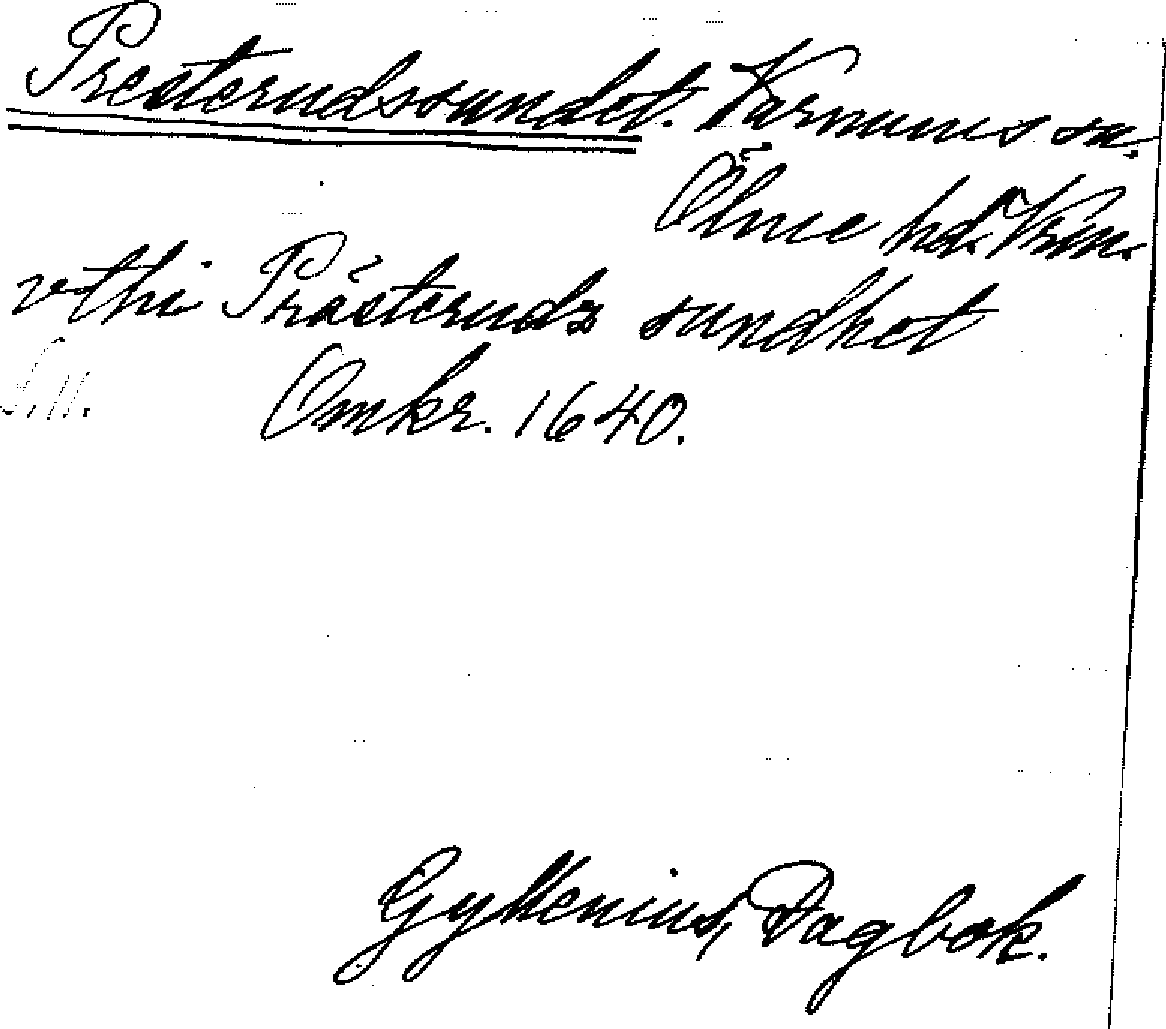 Presterudssundet. Varnums sn.
Ölme hd. Vrm.
vthi Prästerudz sundhet
Omkr. 1640.
Gyllenius, Dagbok.